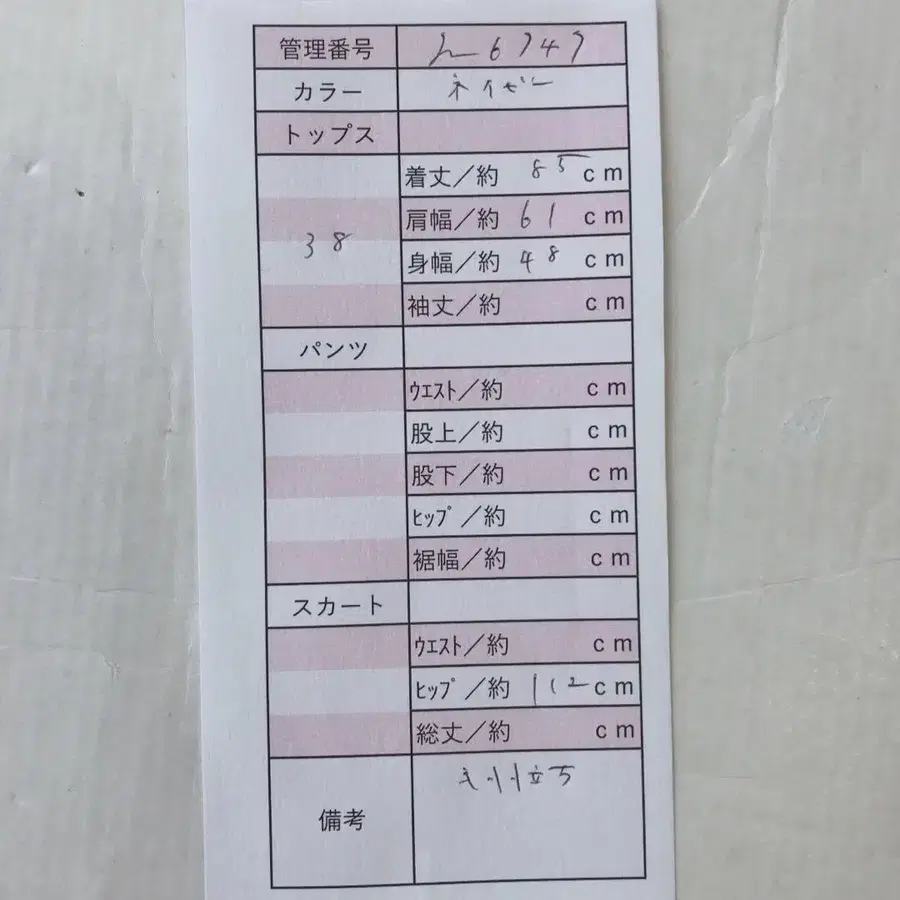 管理番号 6747
カラー ネイビー
トップス
38
着丈／約 85 cm
肩幅／約 61 cm
身幅／約 48 cm
袖丈／約 cm
パンツ
ウエスト／約 cm
股上／約 cm
股下／約 cm
ヒップ／約 cm
裾幅／約 cm
スカート
ウエスト／約 cm
ヒップ／約 112 cm
総丈／約 cm
備考 毛羽立ち